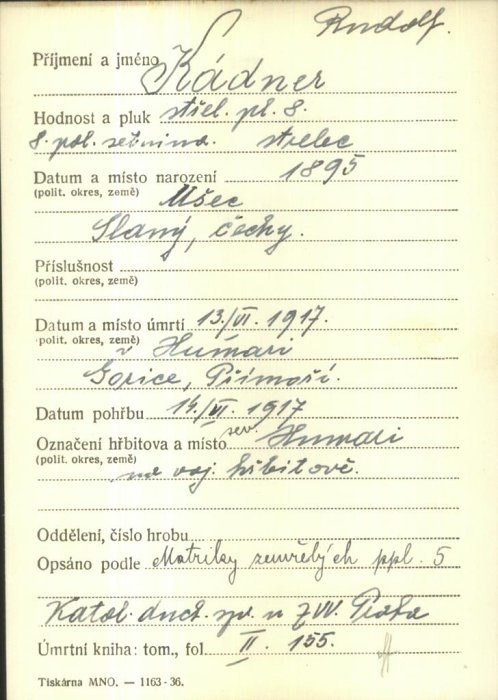 Rudolf.
Příjmení a jméno Kádner
Hodnost a pluk střel. pl. 8.
8. pol. setnina. střelec
Datum a místo narození 1895
(polit. okres, země) Mšec
Slaný, Čechy.
Příslušnost
(polit. okres, země)
Datum a místo úmrtí 13./VI. 1917.
polit. okres, země) v Humari
Gorice, Přímoří.
Datum pohřbu 14./VI. 1917
Označení hřbitova a místo sev. Humari
(polit. okres, země) na voj. hřbitově.
Oddělení, číslo hrobu
Opsáno podle Matriky zemřelých ppl. 5
Katol. duch. sp. u ZVV. Praha
Úmrtní kniha: tom., fol. II. 155.
Tiskárna MNO. — 1163-36.